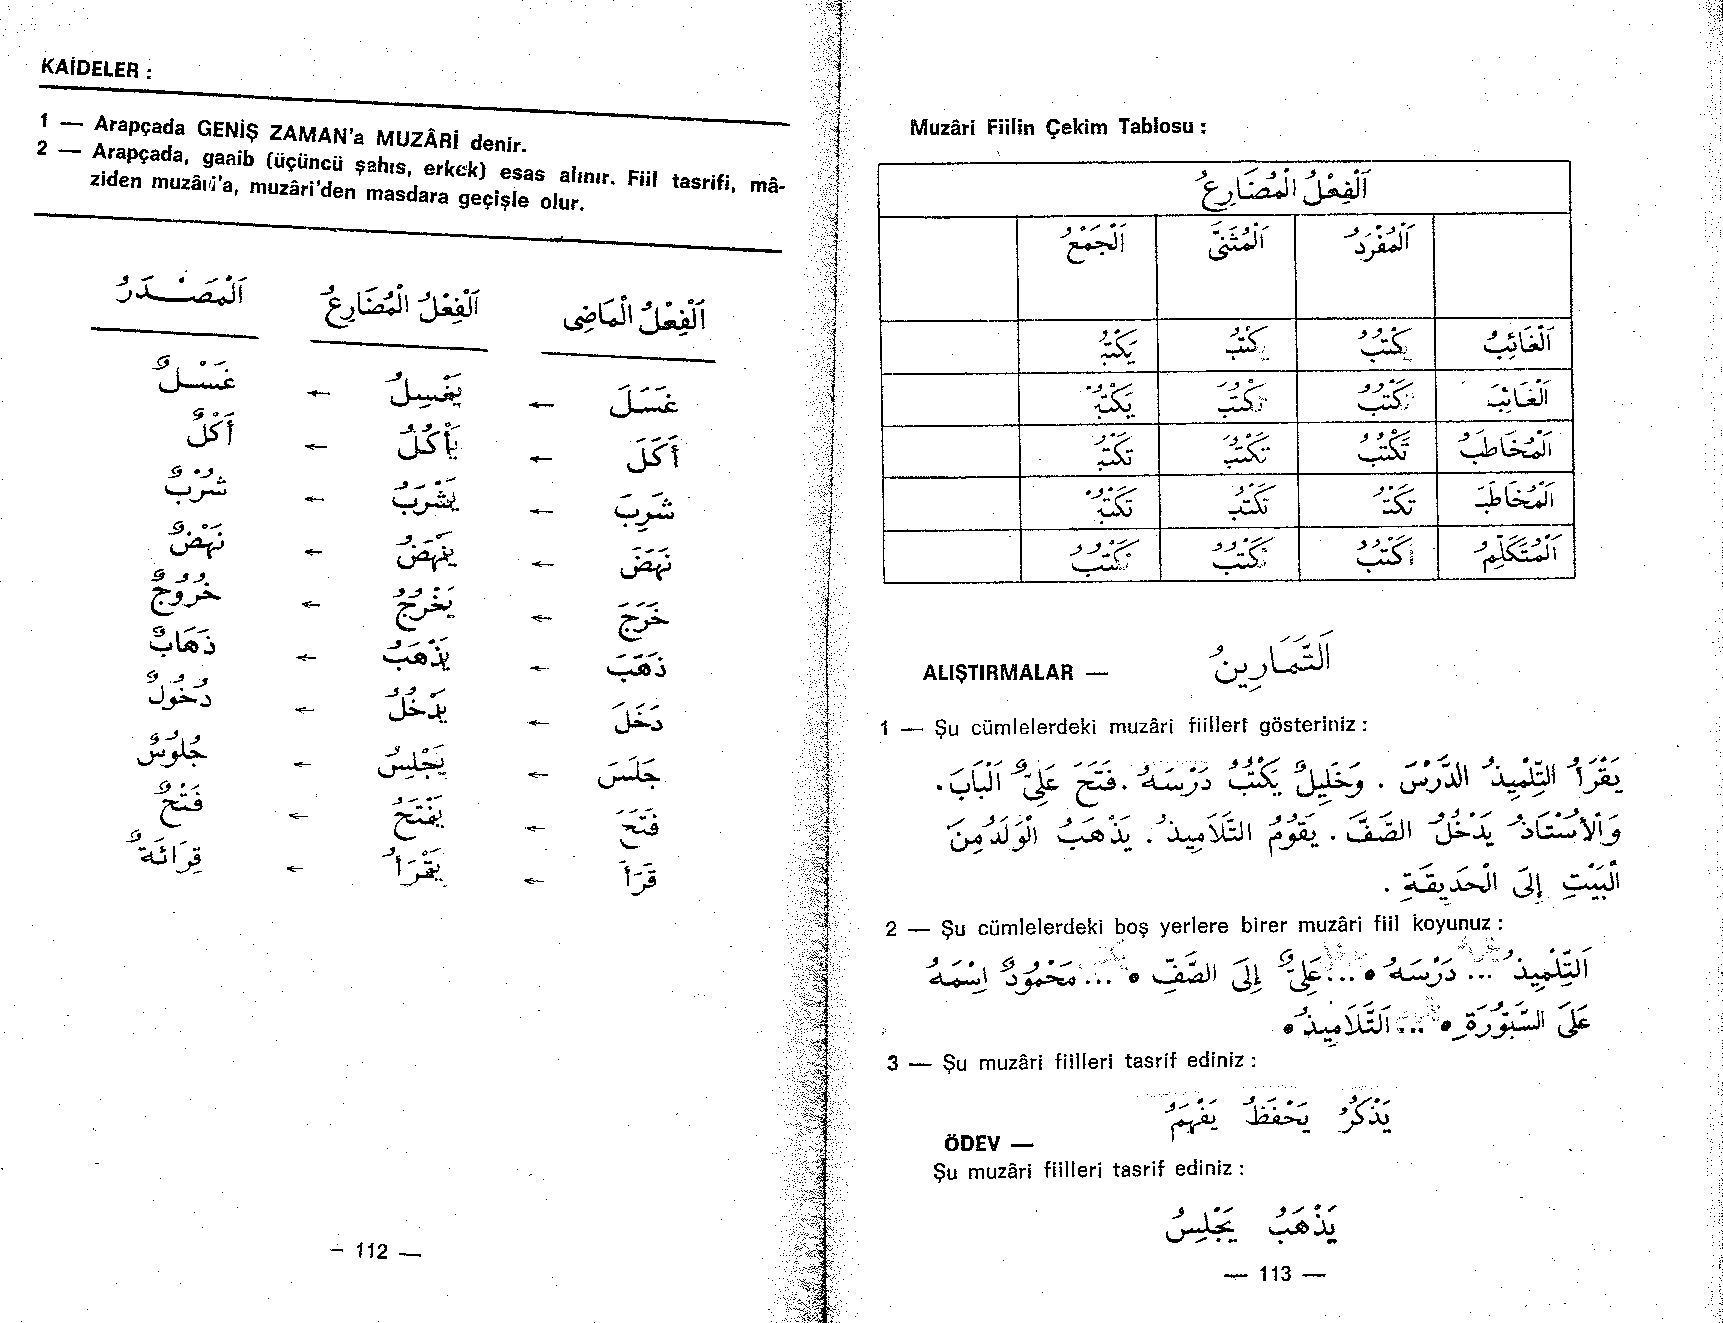 KAİDELER :
1 — Arapçada GENİŞ ZAMAN'a MUZÂRİ denir.
2 — Arapçada, gaaib (üçüncü şahıs, erkek) esas alınır. Fiil tasrifi, mâ-
ziden muzâri'a, muzâri'den masdara geçişle olur.
اَلْفِعْلُ الْمَاضِى اَلْفِعْلُ الْمُضَارِعُ اَلْمَصْدَرُ
غَسَلَ ← يَغْسِلُ ← غَسْلٌ
أَكَلَ ← يَأْكُلُ ← أَكْلٌ
شَرِبَ ← يَشْرَبُ ← شُرْبٌ
نَهَضَ ← يَنْهَضُ ← نَهْضٌ
خَرَجَ ← يَخْرُجُ ← خُرُوجٌ
ذَهَبَ ← يَذْهَبُ ← ذَهَابٌ
دَخَلَ ← يَدْخُلُ ← دُخُولٌ
جَلَسَ ← يَجْلِسُ ← جُلُوسٌ
فَتَحَ ← يَفْتَحُ ← فَتْحٌ
قَرَأَ ← يَقْرَأُ ← قِرَائَةٌ
— 112 —
Muzâri Fiilin Çekim Tablosu :
اَلْفِعْلُ الْمُضَارِعُ
اَلْمُفْرَدُ اَلْمُثَنَّى اَلْجَمْعُ
اَلْغَائِبُ
اَلْغَائِبَ
اَلْمُخَاطَبُ تَكْتُبُ
اَلْمُخَاطَبَ
اَلْمُتَكَلِّمُ
ALIŞTIRMALAR — اَلتَّمَارِينُ
1 — Şu cümlelerdeki muzâri fiilleri gösteriniz :
يَقْرَأُ التِّلْمِيذُ الدَّرْسَ . وَخَلِيلٌ يَكْتُبُ دَرْسَهُ . فَتَحَ عَلِيٌّ الْبَابَ .
وَالْأُسْتَاذُ يَدْخُلُ الصَّفَّ . يَقُومُ التَّلَامِيذُ . يَذْهَبُ الْوَلَدُ مِنَ
الْبَيْتِ إِلَى الْحَدِيقَةِ .
2 — Şu cümlelerdeki boş yerlere birer muzâri fiil koyunuz :
اَلتِّلْمِيذُ ... دَرْسَهُ • ... عَلِيٌّ إِلَى الصَّفِّ • ... مَحْمُودٌ اِسْمَهُ
عَلَى السَّبُّورَةِ • ... اَلتَّلَامِيذُ •
3 — Şu muzâri fiilleri tasrif ediniz :
يَذْكُرُ يَحْفَظُ يَفْهَمُ
ÖDEV —
Şu muzâri fiilleri tasrif ediniz :
يَذْهَبُ يَجْلِسُ
— 113 —